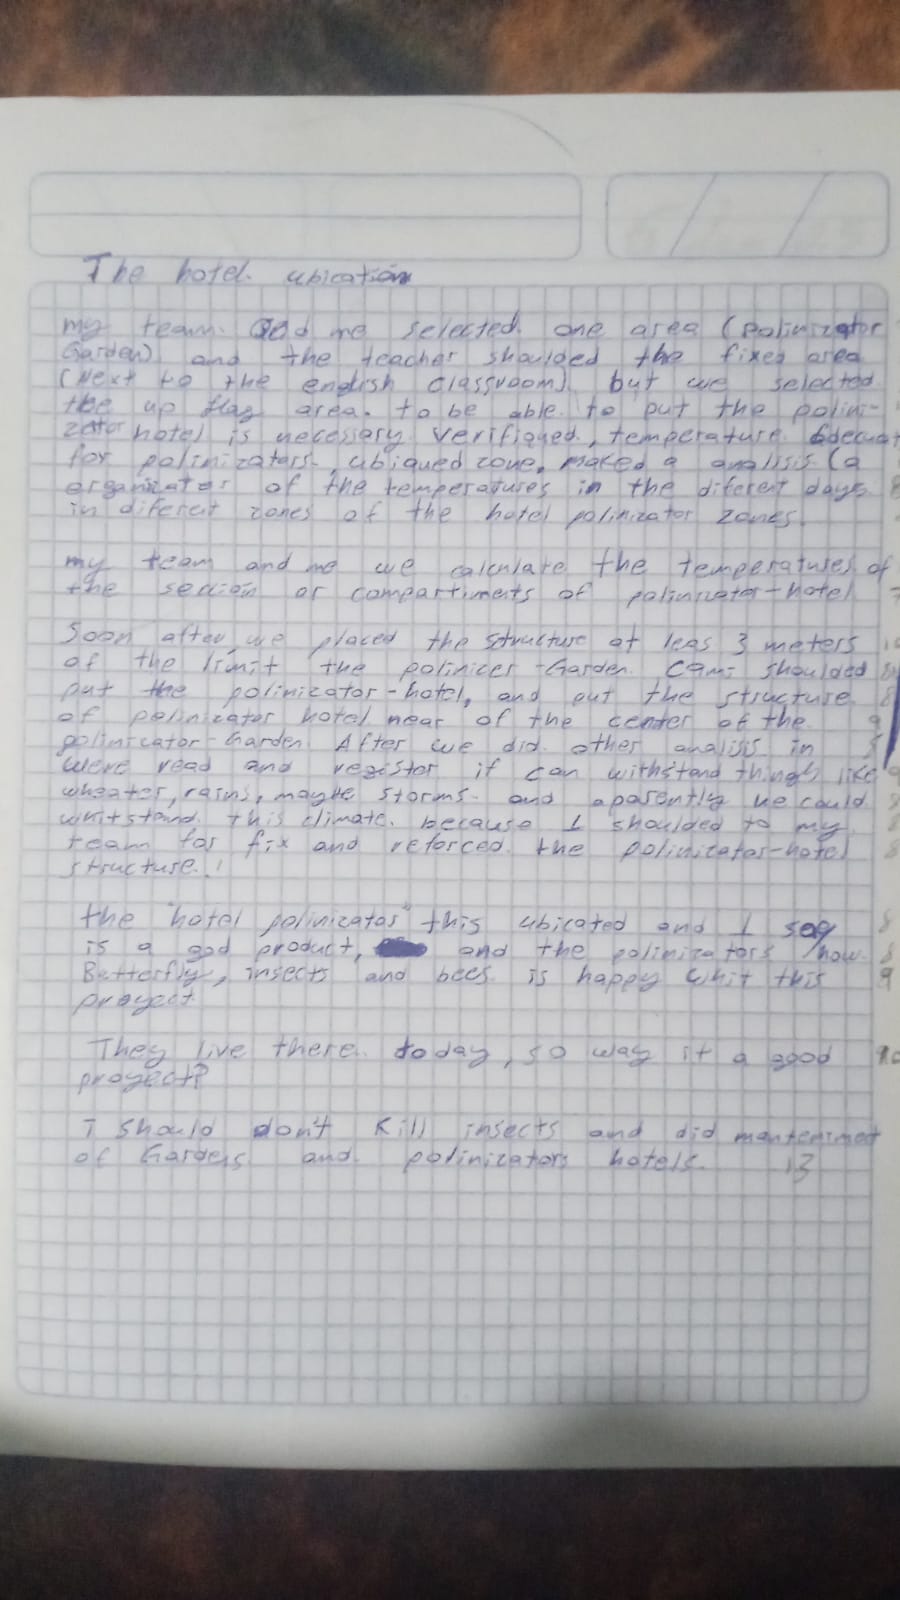 The hotel. ubication
my team. and me selected. one area (polinizator
Garden) and the teacher shoulded the fixed area
(Next to the english classroom). but we selected.
the up flag area. to be able. to put the polini-
zator hotel is necessary. Verifiqued, temperature. adecuat
for polinizators., ubiqued zone, maked a analisis (a
organizator of the temperatures in the diferent days.
in diferent zones of the hotel polinizator zones.
my team and me we calculate the temperatures of
the section or compartiments of polinizator-hotel
Soon after, we placed the structure at leas 3 meters
of the limit the polinicer-Garden. Cam: shoulded
put the polinizator-hotel, and put the structure.
of polinizator hotel near of the center of the.
polinicator-Garden. After we did. other analisis. in
were read and registor if can withstand things like
wheater, rains, maybe storms. and aparently we could
whitstand. this climate. because I shoulded to my
team for fix and reforced. the polinizator-hotel
structure.!
the "hotel polinizator" this ubicated and I say
is a god product, and the polinizators /how.
Butterfly, insects and bees. is happy whit this
proyect
They live there. today, so way it a good
proyect?
I should don't kill insects and did mantenimet
of Gardens and. polinizators hotels. 13